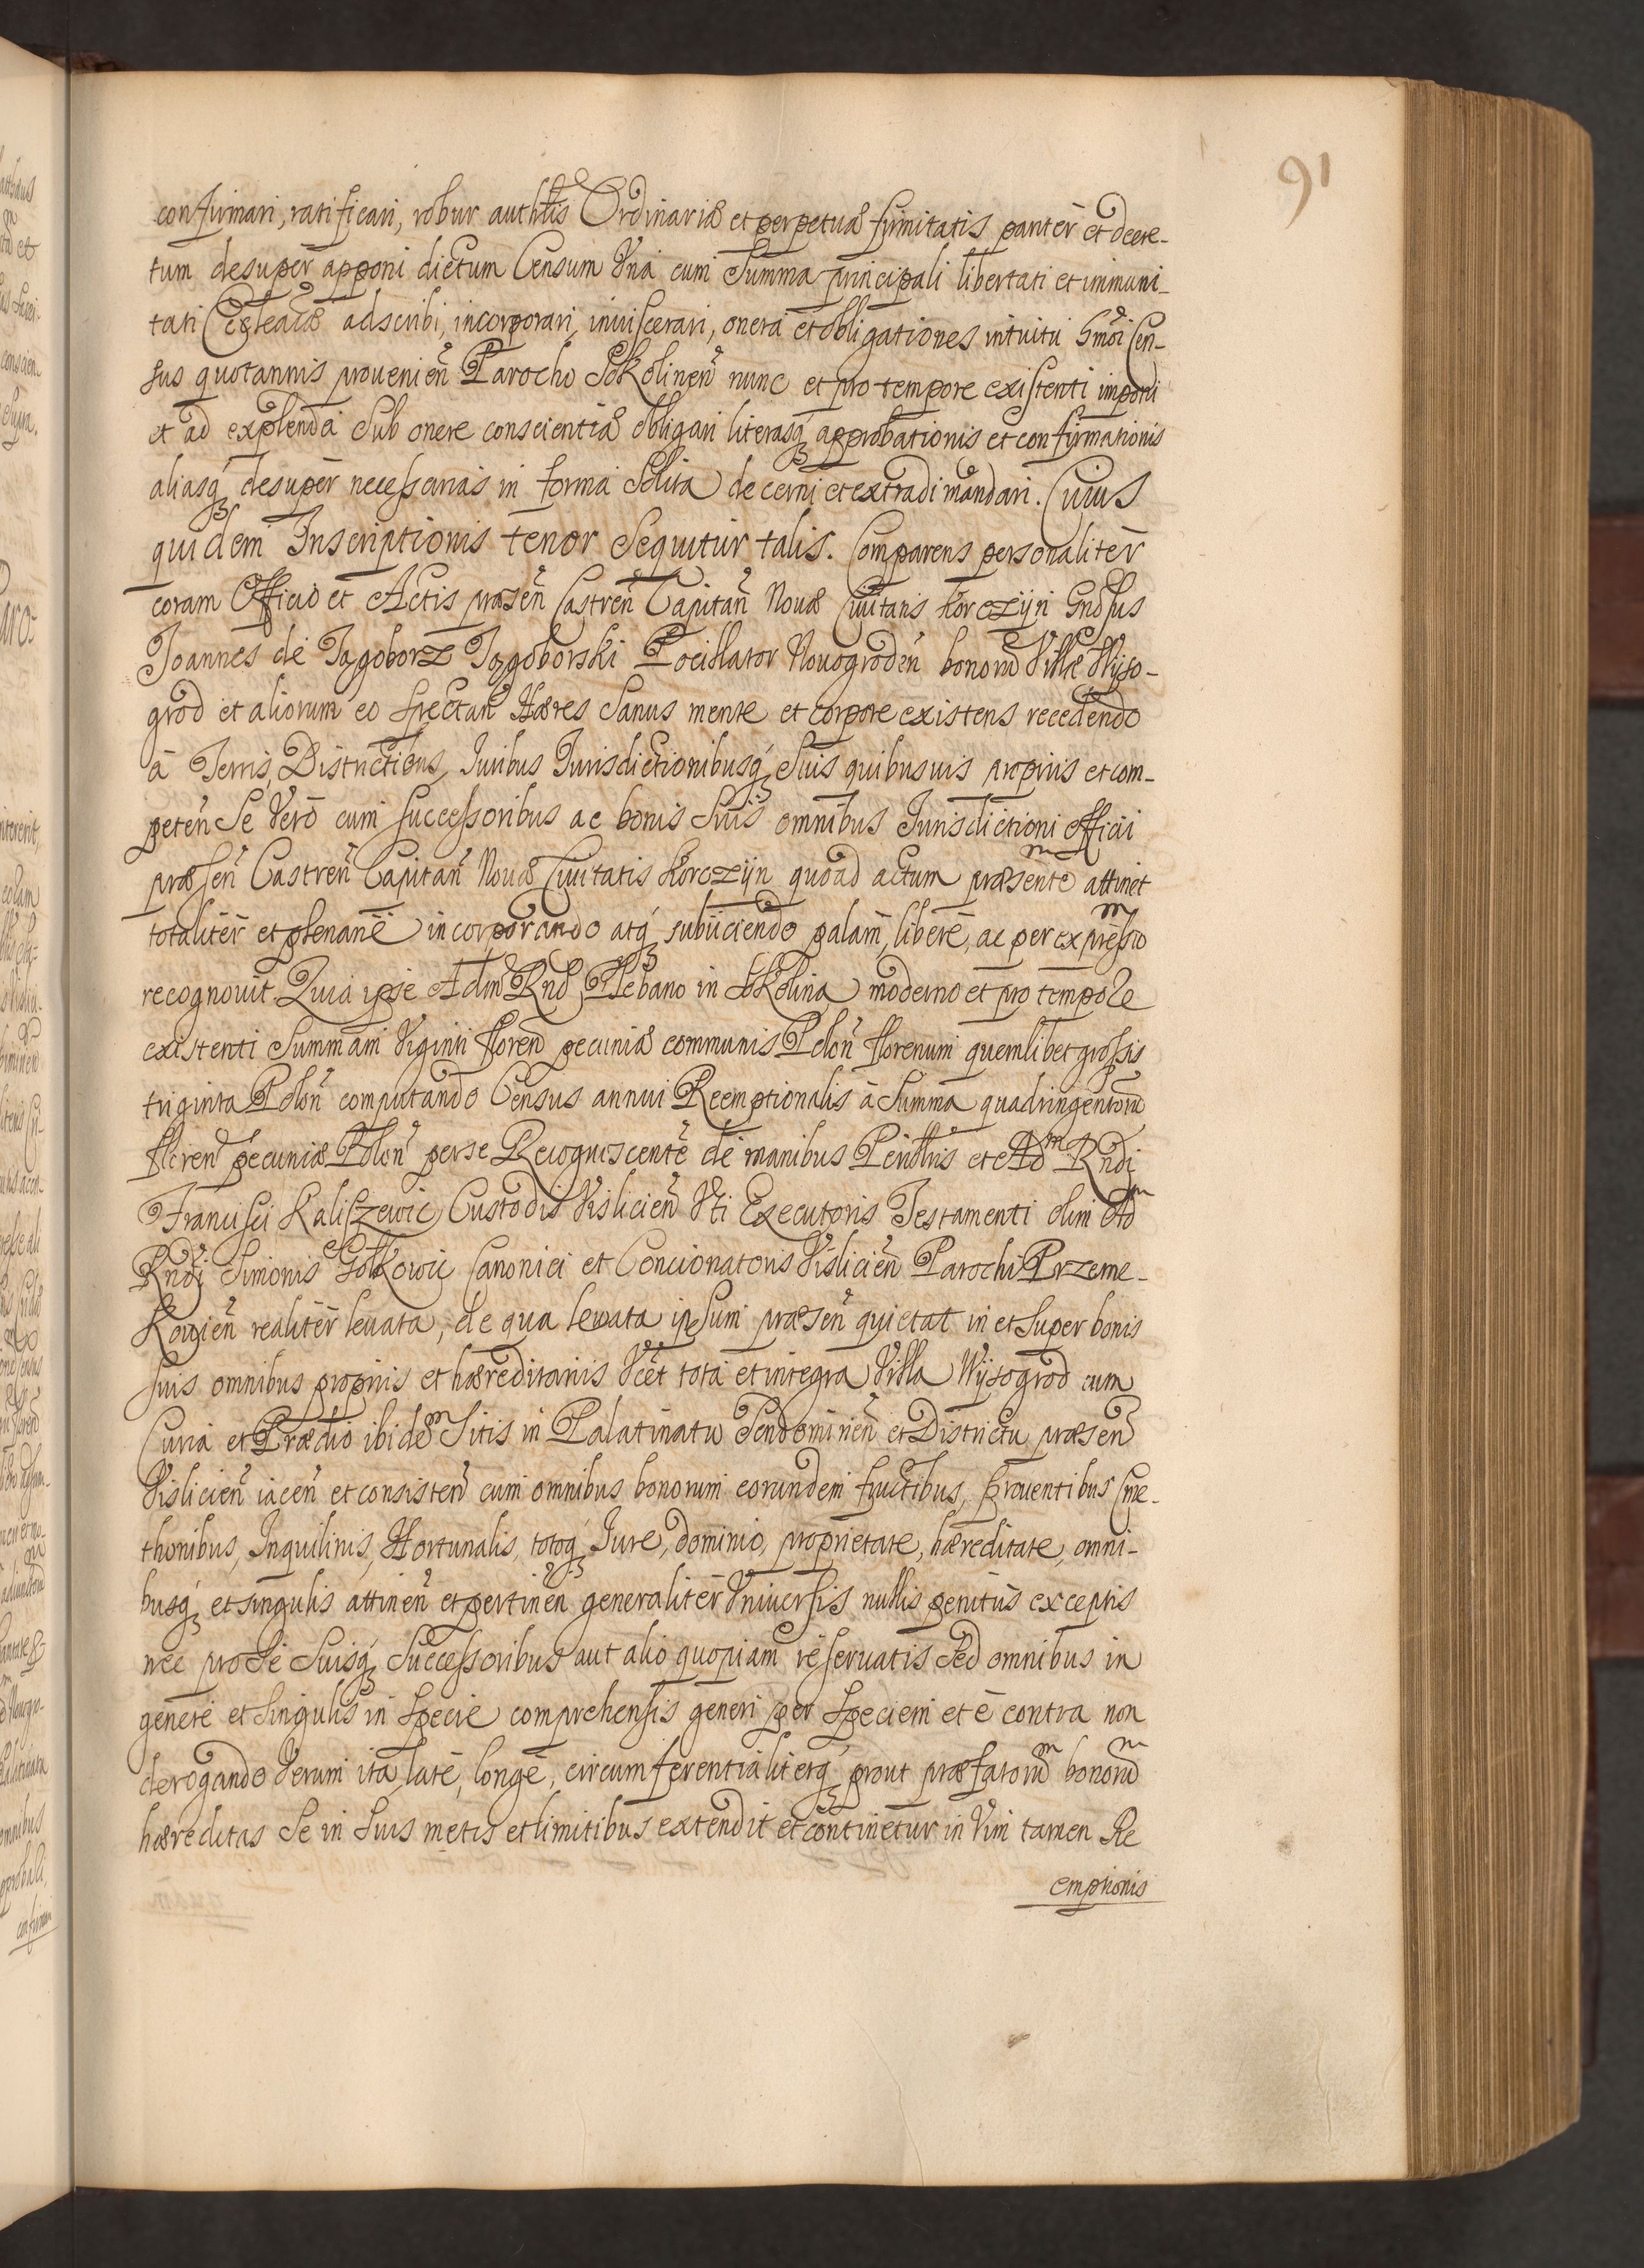 91
confirmari, ratificari, robur authtis Ordinariæ et perpetuæ firmitatis pariter et decre-
tum desuper apponi dictum Censum Vna cum Summa principali libertati et immuni-
tati Ecclcæ adscribi, incorporari, inuiscerari, onera et obligationes intuitu hmoi Cen-
sus quotannis prouenien Parocho Sokolinen nunc et pro tempore existenti imponi
et ad explenda Sub onere conscientiæ obligari literasq approbationis et confirmationis
aliasq desuper necessarias in forma Solita decerni et extradi mandari. Cuius
quidem Inscriptionis tenor Sequitur talis. Comparens personaliter
coram Officio et Actis præsen Castren Capitan Nouæ Ciuitatis Korczyn Gnosus
Joannes de Jagoborz Jagoborski Pocillator Nouogroden bonorū Villæ Wyso-
grod et aliorum eo Spectan Hæres Sanus mente et corpore existens recedendo
à Terris, Districtibus, Juribus Jurisdictionibusq Suis quibusuis proprijs et com-
peten Se Verò cum Successoribus ac bonis Suis omnibus Jurisdictioni Officij
præsen Castren Capitan Nouæ Ciuitatis Korczyn quoad actum præsentem attinet
totaliter et plenariè incorporando atq subijciendo palam, liberè, ac per expressum
recognouit. Quia ipse Adm Rnd Plebano in Sokolina moderno et pro tempore
existenti Summam Viginti floren pecuniæ communis Polon florenum quemlibet grossis
triginta Polon computando Census annui Reemptionalis à Summa quadringentorū
floren pecuniæ Polon per se Recognoscentē de manibus Perillris et Adm Rndi
Francisci Kaliszewic Custodis Vislicien Vti Executoris Testamenti olim Adm
Rndi Simonis Golkowic Canonici et Concionatoris Vislicien Parochi Przeme-
kowien realiter leuata, de qua leuata ipsum præsen quietat in et Super bonis
suis omnibus proprijs et hæreditarijs Vcet tota et integra Villa Wysogrod cum
Curia et Prædio ibidem Sitis in Palatinatu Sendomirien et Districtu præsen
Vislicien iacen et consisten cum omnibus bonorum eorundem fructibus, prouentibus Cme-
thonibus, Inquilinis, Hortunalis, totoq Jure, dominio, proprietate, hæreditate, omni-
busq et singulis attinen et pertinen generaliter Vniuersis nullis penitus exceptis
nec pro Se Suisq Successoribus aut alio quopiam reseruatis Sed omnibus in
genere et Singulis in Specie comprehensis generi per Speciem et è contra non
derogando Verum ita latè, longè, circumferentialiterq prout præfatorum bonorum
hæreditas Se in Suis metis et limitibus extendit et continetur in Vim tamen Re
emptionis